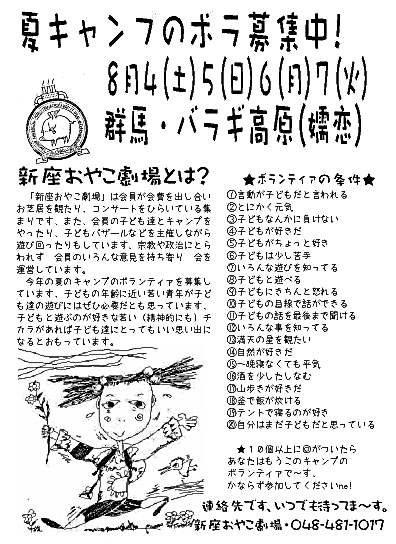 夏キャンプのボラ募集中!
8月4(土)5(日)6(月)7(火)
群馬・バラギ高原(嬬恋)
新座おやこ劇場とは?
「新座おやこ劇場」は会員が会費を出し合い
お芝居を観たり、コンサートをひらいている集
まりです。また、会員の子ども達とキャンプを
やったり、子どもバザールなどを主催しながら
遊び回ったりもしています。宗教や政治にとら
われず 会員のいろんな意見を持ち寄り 会を
運営しています。
今年の夏のキャンプのボランティアを募集し
ています、子どもの年齢に近い若い青年が子ど
も達の遊びにはぜひ必要だとも思っています。
子どもと遊ぶのが好きな若い(精神的にも)チ
カラがあれば子ども達にとってもいい思い出に
なるとおもっています。
★ボランティアの条件★
①言動が子どもだと言われる
②とにかく元気
③子どもなんかに負けない
④子どもが好きだ
⑤子どもがちょっと好き
⑥子どもは少し苦手
⑦いろんな遊びを知ってる
⑧子どもと遊べる
⑨子どもにきちんと怒れる
⑩子どもの目線で話ができる
⑪子どもの話を最後まで聞ける
⑫いろんな事を知ってる
⑬満天の星を観たい
⑭自然が好きだ
⑮一晩寝なくても平気
⑯酒を少したしなむ
⑰山歩きが好きだ
⑱釜で飯が炊ける
⑲テントで寝るのが好き
⑳自分はまだ子どもだと思っている
★10個以上に◎がついたら
あなたはもうこのキャンプの
ボランティアで〜す。
かならず参加してくださいne!
連絡先です、いつでも待ってま〜す。
新座おやこ劇場・048-481-1077